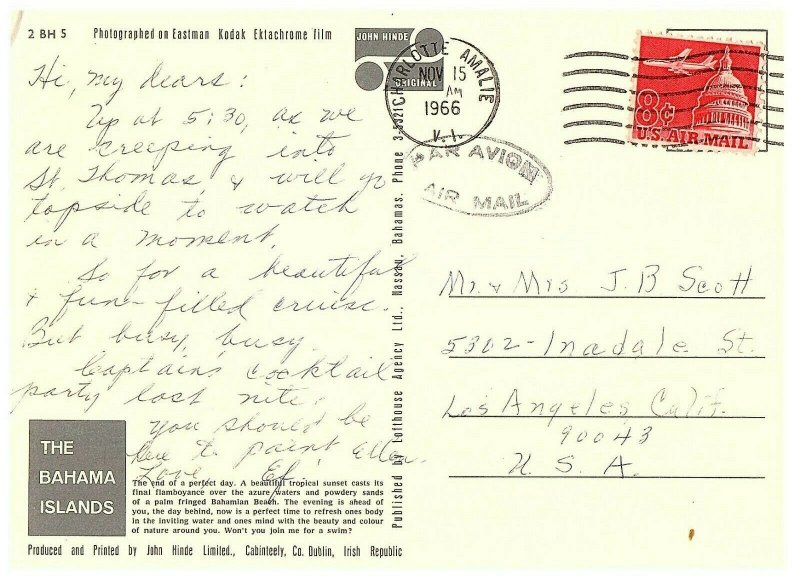 2 BH 5 Photographed on Eastman Kodak Ektachrome film
JOHN HINDE
ORIGINAL
CHARLOTTE AMALIE
NOV 15
AM
1966
V.I.
PAR AVION
AIR MAIL
8¢
U.S. AIR MAIL
Hi, my dears:
Up at 5:30, as we
are creeping into
St. Thomas, & will go
topside to watch
in a moment.
So far a beautiful
& fun-filled cruise.
But busy, busy.
Captains cocktail
party last nite.
You should be
here to paint Ellen.
Love
Mr. & Mrs. J. B Scott
5302 - Inadale St.
Los Angeles Calif.
90043
U. S. A.
Published by Lofthouse Agency Ltd., Nassau, Bahamas. Phone 3-5321
THE
BAHAMA
ISLANDS
The end of a perfect day. A beautiful tropical sunset casts its
final flamboyance over the azure waters and powdery sands
of a palm fringed Bahamian Beach. The evening is ahead of
you, the day behind, now is a perfect time to refresh ones body
in the inviting water and ones mind with the beauty and colour
of nature around you. Won't you join me for a swim?
Produced and Printed by John Hinde Limited., Cabinteely, Co. Dublin, Irish Republic